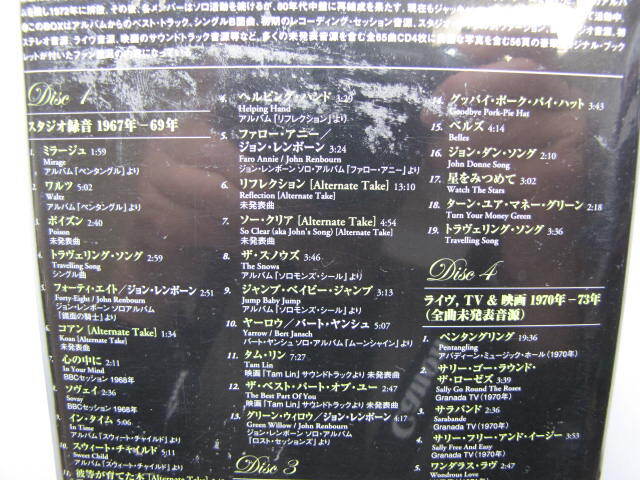 を残し1973年に解散。その後、各メンバーはソロ活動を続けるが、80年代中盤に再結成を果たす。現在もジャッキ
このBOXはアルバムからのベスト・トラック、シングルB面曲、初期のレコーディング・セッション音源、スタジオ
ステレオ音源、ライヴ音源、映画のサウンドトラック音源等など、多くの未発表音源を含む全65曲CD4枚に
を含む56頁の
Disc 1
スタジオ録音 1967年-69年
1. ミラージュ 1:59
Mirage
アルバム「ペンタングル」より
2. ワルツ 5:02
Waltz
アルバム「ペンタングル」より
3. ポイズン 2:40
Poison
未発表曲
4. トラヴェリング・ソング 2:59
Travelling Song
シングル曲
5. フォーティ・エイト/ジョン・レンボーン 2:51
Forty-Eight / John Renbourn
ジョン・レンボーン ソロアルバム
「鏡面の騎士」より
6. コアン [Alternate Take] 1:34
Koan [Alternate Take]
未発表曲
7. 心の中に 2:11
In Your Mind
BBCセッション 1968年
8. ソヴェイ 2:16
Sovay
BBCセッション 1968年
9. イン・タイム 5:06
In Time
アルバム「スウィート・チャイルド」より
10. スウィート・チャイルド 5:11
Sweet Child
アルバム「スウィート・チャイルド」より
11. 彼等が育てた木 [Alternate Take]
4. ヘルピング・ハンド 3:29
Helping Hand
アルバム「リフレクション」より
5. ファロー・アニー/
ジョン・レンボーン 3:24
Faro Annie / John Renbourn
ジョン・レンボーン ソロ・アルバム「ファロー・アニー」より
6. リフレクション [Alternate Take] 13:10
Reflection [Alternate Take]
未発表曲
7. ソー・クリア [Alternate Take] 4:54
So Clear (aka John's Song) [Alternate Take]
未発表曲
8. ザ・スノウズ 3:46
The Snows
アルバム「ソロモンズ・シール」より
9. ジャンプ・ベイビー・ジャンプ 3:13
Jump Baby Jump
アルバム「ソロモンズ・シール」より
10. ヤーロウ/バート・ヤンシュ 5:07
Yarrow / Bert Jansch
バート・ヤンシュ ソロ・アルバム「ムーンシャイン」より
11. タム・リン 7:27
Tam Lin
映画「Tam Lin」サウンドトラックより 未発表曲
12. ザ・ベスト・パート・オブ・ユー 2:47
The Best Part Of You
映画「Tam Lin」サウンドトラックより 未発表曲
13. グリーン・ウィロウ/ジョン・レンボーン 4:17
Green Willow / John Renbourn
ジョン・レンボーン ソロ・アルバム
「ロスト・セッションズ」より
Disc 3
14. グッバイ・ポーク・パイ・ハット 3:43
Goodbye Pork-Pie Hat
15. ベルズ 4:14
Belles
16. ジョン・ダン・ソング 2:10
John Donne Song
17. 星をみつめて 3:02
Watch The Stars
18. ターン・ユア・マネー・グリーン 2:18
Turn Your Money Green
19. トラヴェリング・ソング 3:36
Travelling Song
Disc 4
ライヴ, TV & 映画 1970年-73年
(全曲未発表音源)
1. ペンタングリング 19:36
Pentangling
アバディーン・ミュージック・ホール (1970年)
2. サリー・ゴー・ラウンド・
ザ・ローゼズ 3:39
Sally Go Round The Roses
Granada TV (1970年)
3. サラバンド 2:36
Sarabande
Granada TV (1970年)
4. サリー・フリー・アンド・イージー 3:53
Sally Free And Easy
Granada TV (1970年)
5. ワンダラス・ラヴ 2:47
Wondrous Love